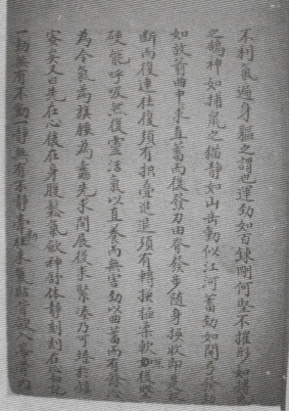 不利氣遍身軀之謂也運勁如百鍊剛何堅不摧形如搏兔
之鵠神如捕鼠之貓靜如山岳動似江河蓄勁如開弓發勁
如放箭曲中求直蓄而後發力由脊發步隨身換收即是放
斷而復連往復須有摺疊進退須有轉換極柔軟而後堅
硬能呼吸然後靈活氣以直養而無害勁以曲蓄而有餘心
為令氣為旗腰為纛先求開展後求緊湊乃可臻於縝
密矣又曰先在心後在身腹鬆氣斂神舒體靜刻刻在心
一動無有不動一靜無有不靜牽動往來氣貼背